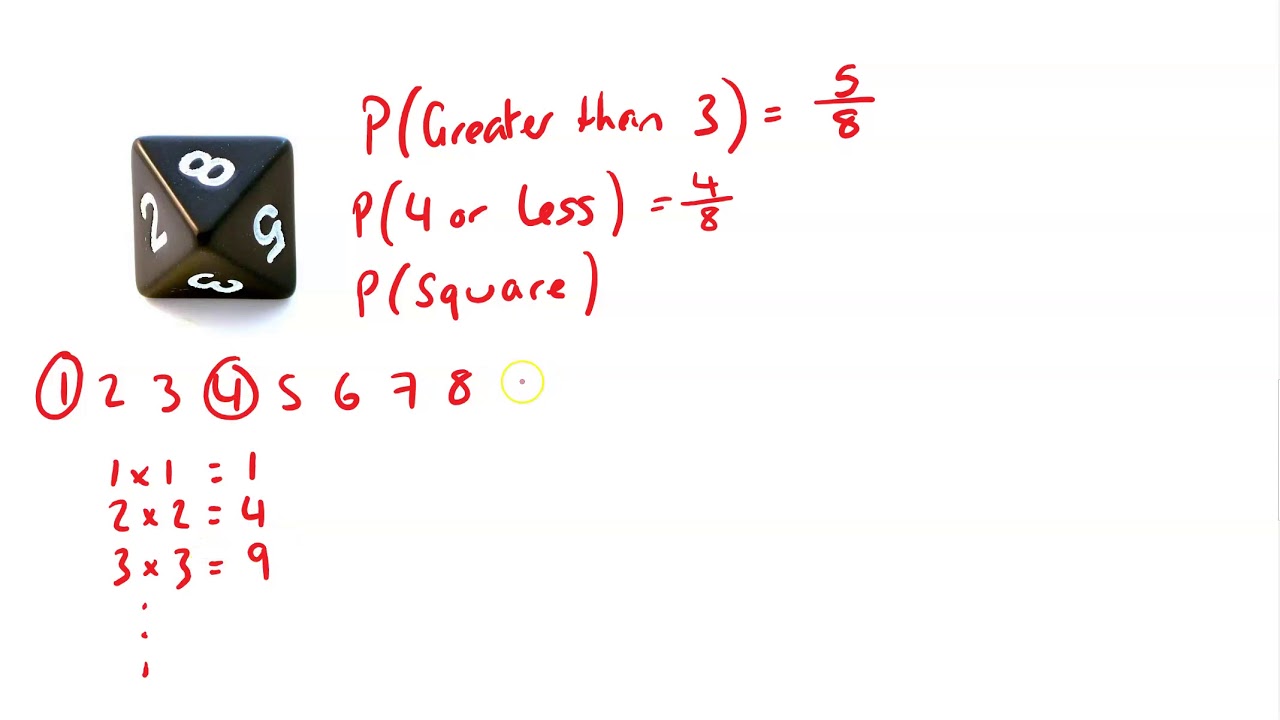 P(Greater than 3) = 5/8
P(4 or Less) = 4/8
P(Square)
8
2
5
3
1 2 3 4 5 6 7 8
1 × 1 = 1
2 × 2 = 4
3 × 3 = 9